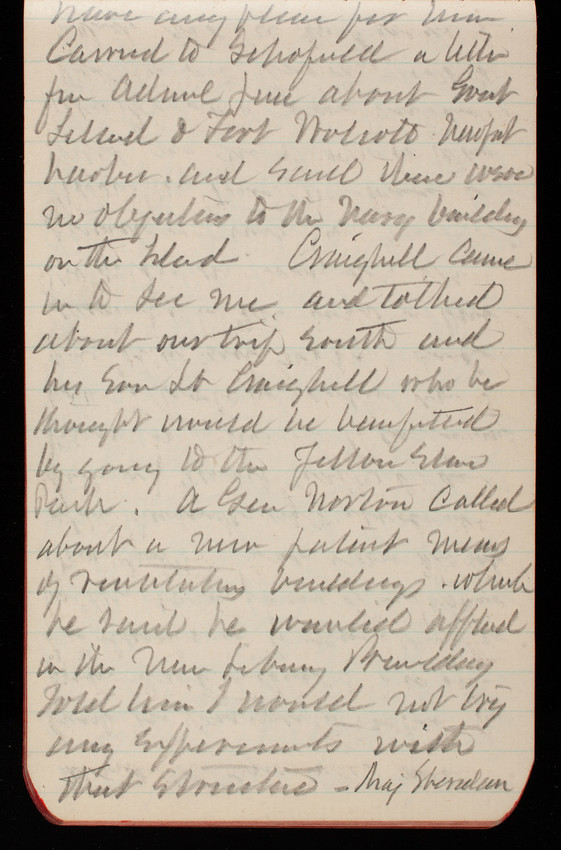 have any place for him
Carried to Schofield a letter
from Admiral about Goat
Island & Fort Wolcott Newport
harbor. and said there were
no objections to the Navy building
on the Island Craighill came
in to see me and talked
about our trip South and
his Son Lt Craighill who he
thought would be benefitted
by going to the Yellow Stone
Park. A Gen Norton called
about a new patent means
of ventilating buildings. which
he said he wanted applied
in the New Library Building
Told him I would not try
any experiments with
that structure - Maj Sheridan